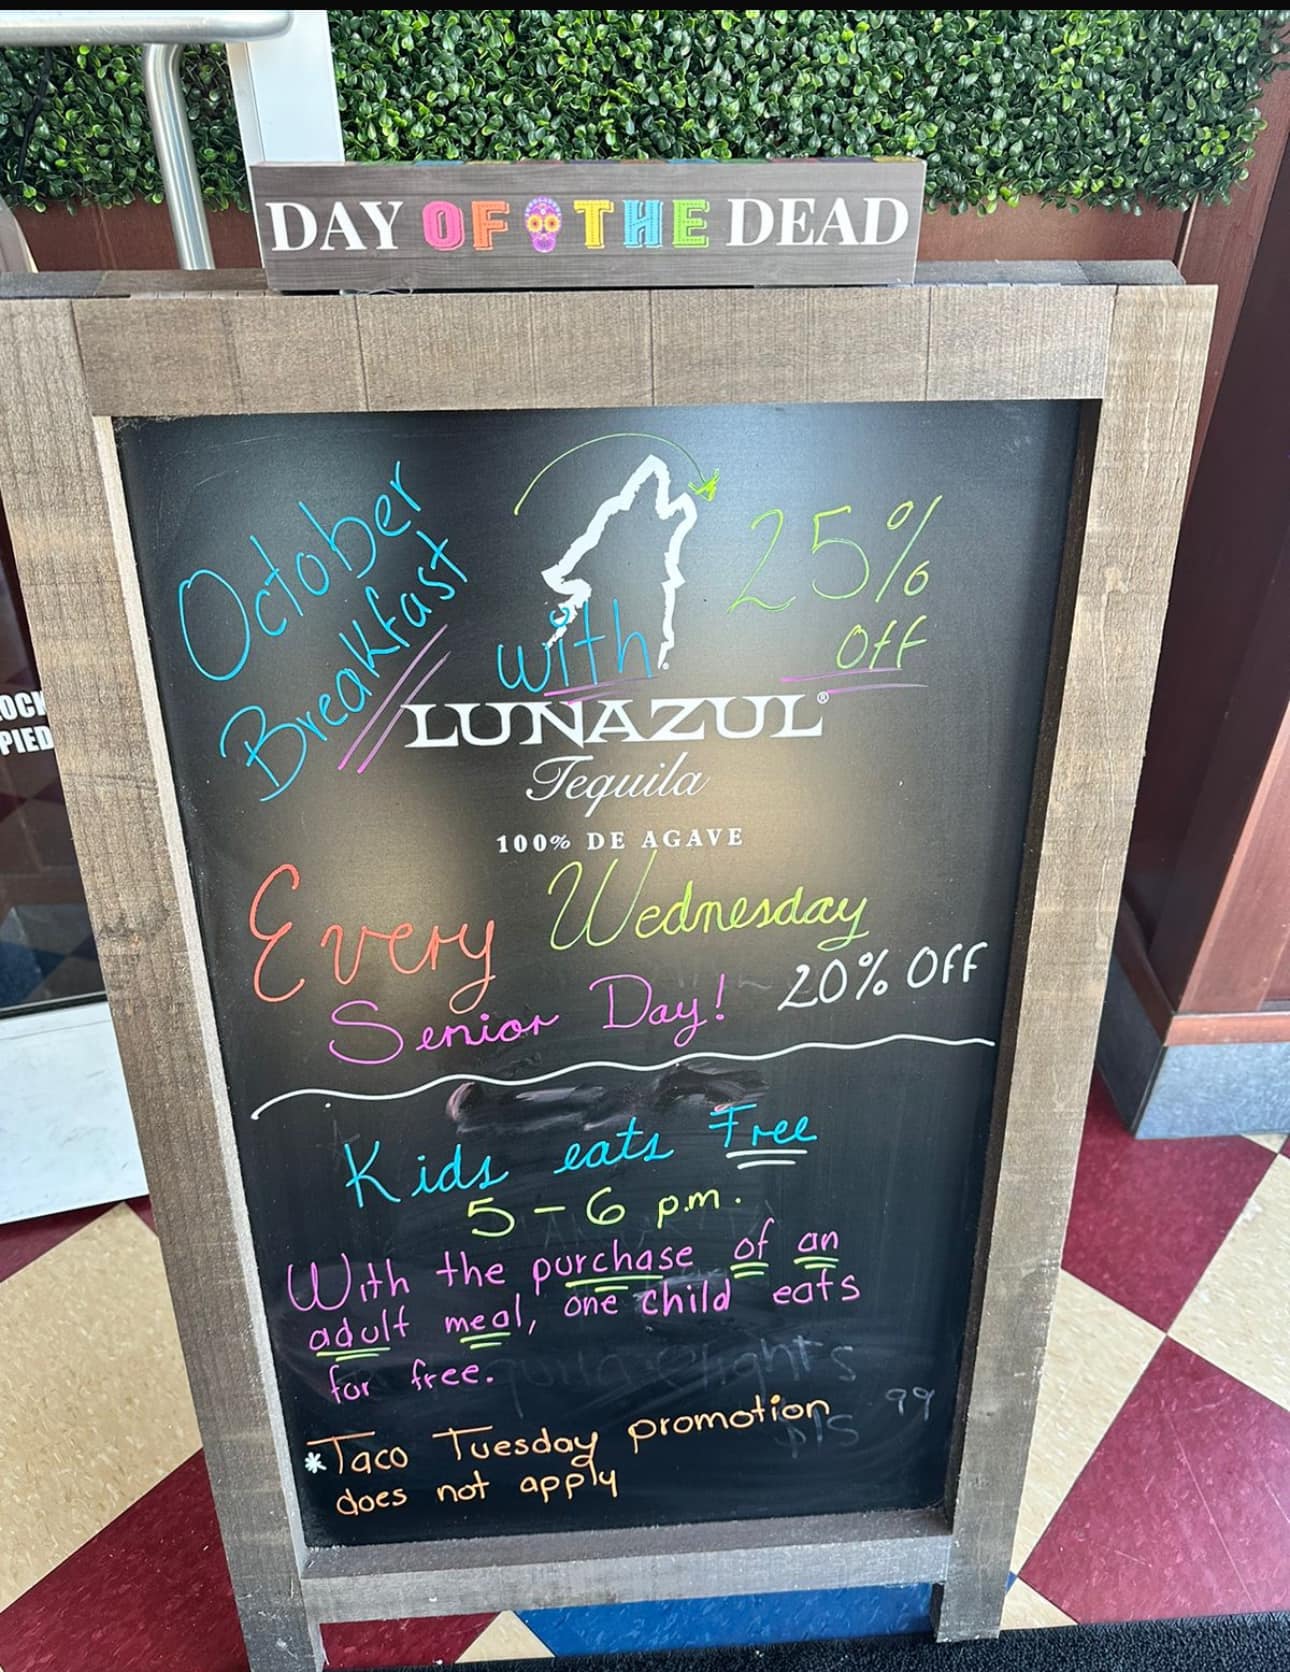 DAY OF THE DEAD
October
Breakfast
with
25%
Off
LUNAZUL®
Tequila
100% DE AGAVE
Every Wednesday
Senior Day! 20% OFF
Kids eats Free
5-6 p.m.
With the purchase of an
adult meal, one child eats
for free.
*Taco Tuesday promotion
does not apply
OCK
PIED
99